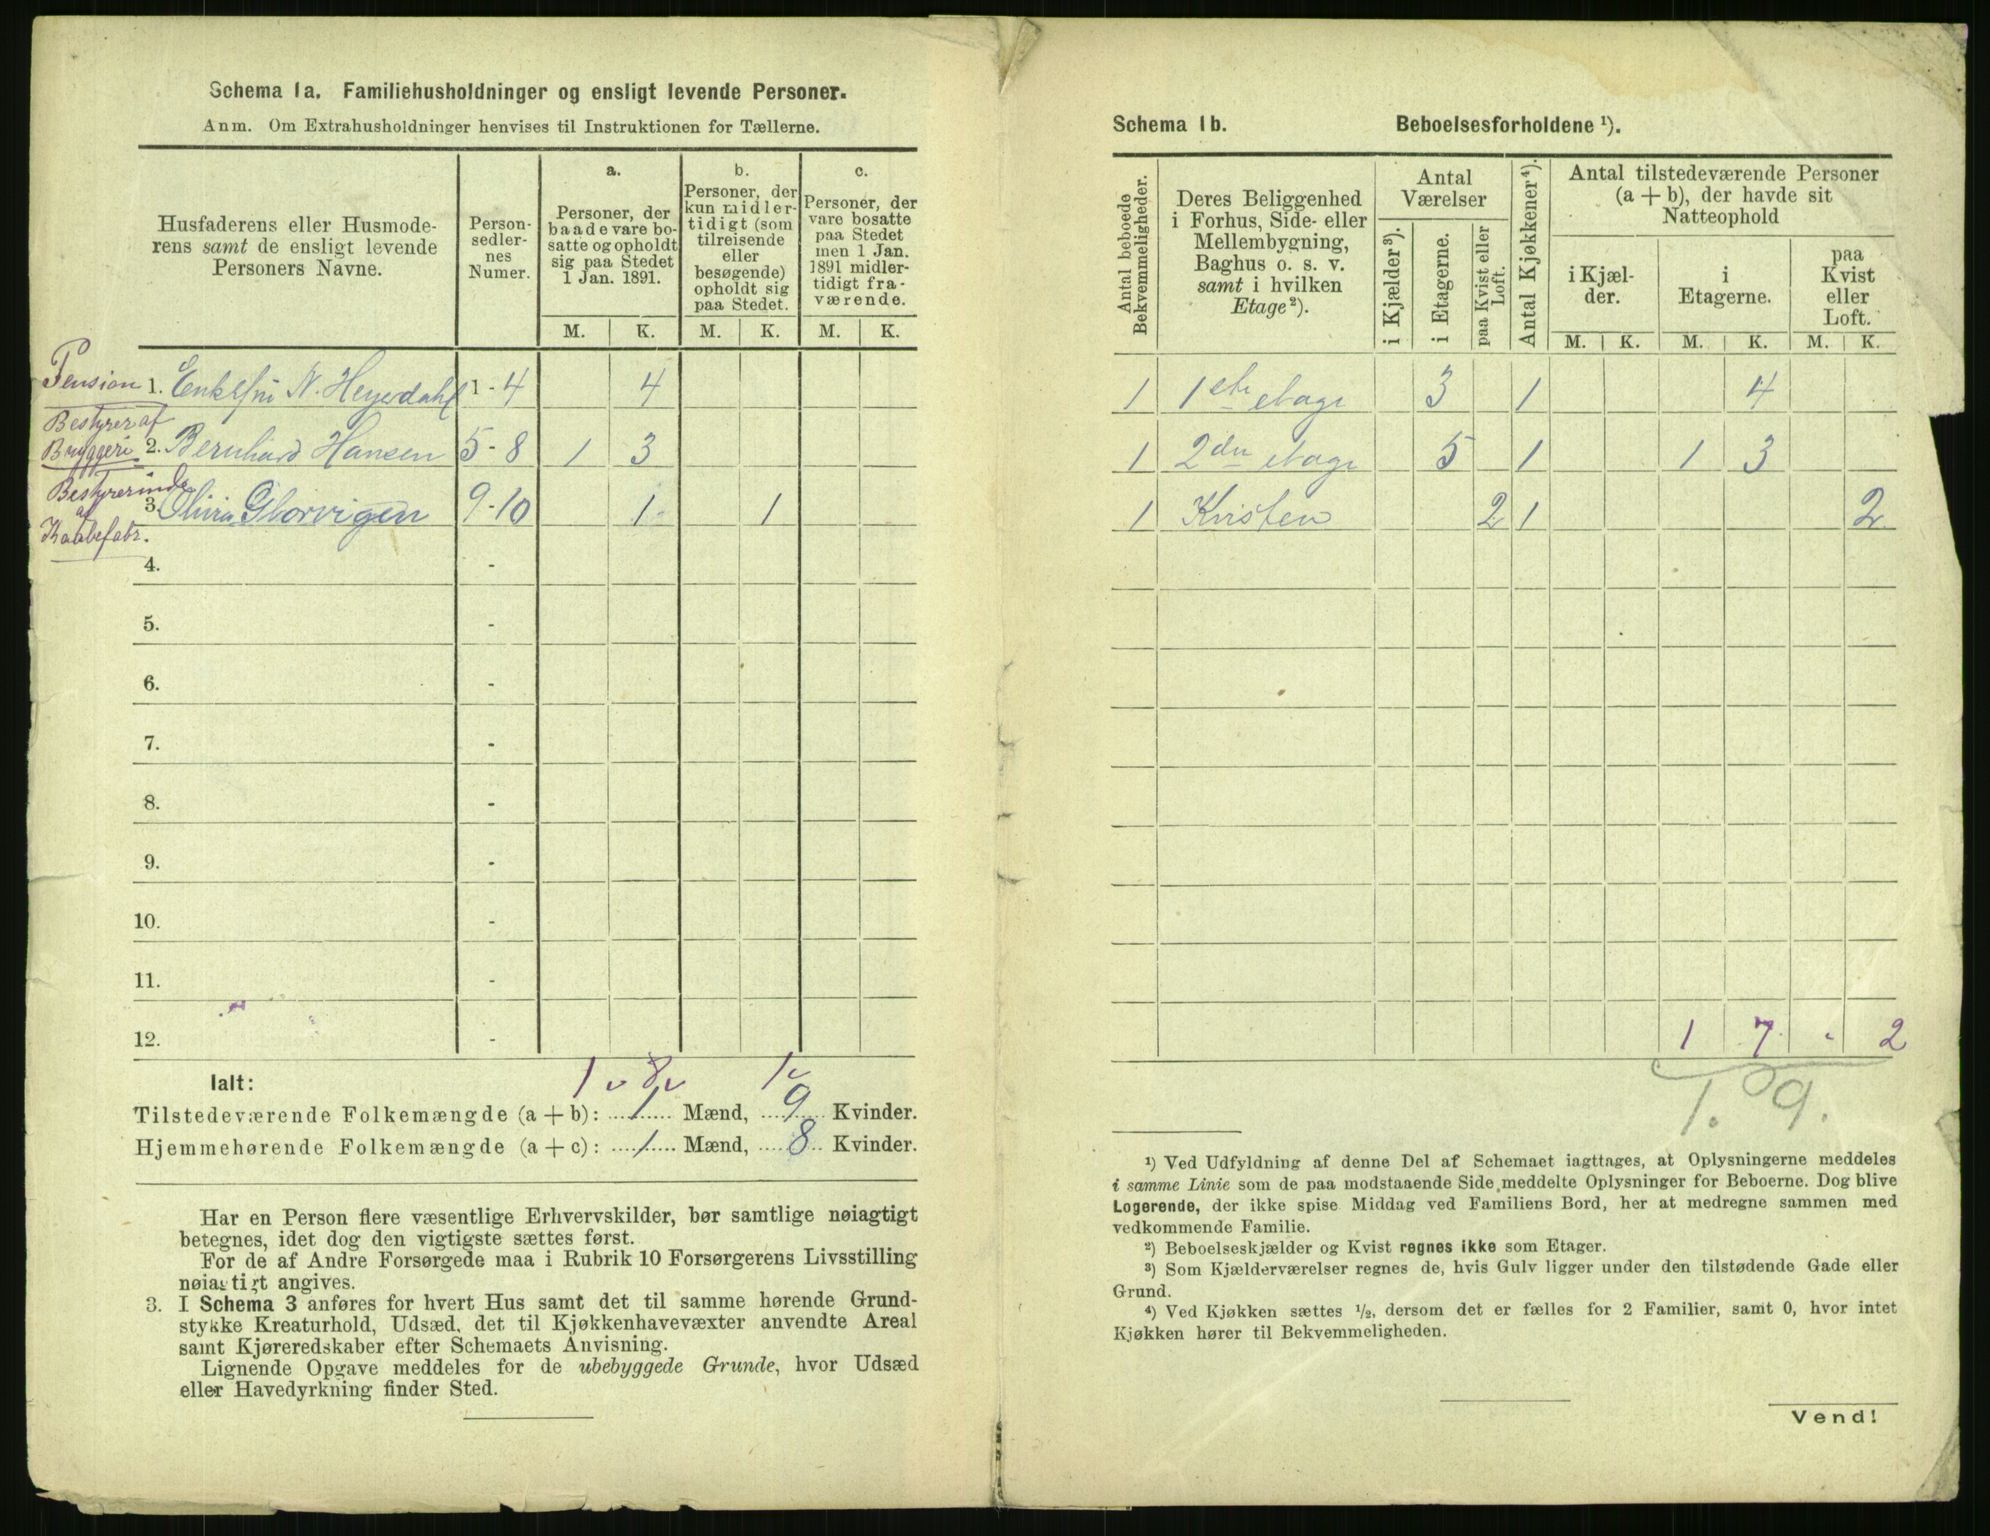 Schema 1a. Familiehusholdninger og ensligt levende Personer.
Anm. Om Extrahusholdninger henvises til Instruktionen for Tællerne.
Husfaderens eller Husmode-
rens samt de ensligt levende
Personers Navne.
Person-
sedler-
nes
Numer.
a.
Personer, der
baade vare bo-
satte og opholdt
sig paa Stedet
1 Jan. 1891.
b.
Personer, der
kun midler-
tidigt (som
tilreisende
eller
besøgende)
opholdt sig
paa Stedet.
c.
Personer, der
vare bosatte
paa Stedet
men 1 Jan.
1891 midler-
tidigt fra-
værende.
M. K. M. K. M. K.
Pension
1. N. Heyerdahl 1-4 4
Bestyrer af
Bryggeri
2. Bernhard Hansen 5-8 1 3
Bestyrerinde
af
Kaabefabr.
3. 9-10 1 1
4. -
5. -
6. -
7. -
8. -
9. -
10. -
11. -
12. -
Ialt: 1 8 1
Tilstedeværende Folkemængde (a + b): 1 Mænd, 9 Kvinder.
Hjemmehørende Folkemængde (a + c): 1 Mænd, 8 Kvinder.
Har en Person flere væsentlige Erhvervskilder, bør samtlige nøiagtigt
betegnes, idet dog den vigtigste sættes først.
For de af Andre Forsørgede maa i Rubrik 10 Forsørgerens Livsstilling
nøiagtigt angives.
3. I Schema 3 anføres for hvert Hus samt det til samme hørende Grund-
stykke Kreaturhold, Udsæd, det til Kjøkkenhavevæxter anvendte Areal
samt Kjøreredskaber efter Schemaets Anvisning.
Lignende Opgave meddeles for de ubebyggede Grunde, hvor Udsæd
eller Havedyrkning finder Sted.
Schema 1b. Beboelsesforholdene ¹).
Antal beboede
Bekvemmeligheder.
Deres Beliggenhed
i Forhus, Side- eller
Mellembygning,
Baghus o. s. v.
samt i hvilken
Etage²).
Antal
Værelser
i Kjælder³).
i Etagerne.
paa Kvist eller
Loft.
Antal Kjøkkener⁴).
Antal tilstedeværende Personer
(a + b), der havde sit
Natteophold
i Kjæl-
der.
i
Etagerne.
paa
Kvist
eller
Loft.
M. K. M. K. M. K.
1 1ste etage 3 1 4
1 2den etage 5 1 1 3
1 Kvisten 2 1 2
1 7 2
1. 9.
¹) Ved Udfyldning af denne Del af Schemaet iagttages, at Oplysningerne meddeles
i samme Linie som de paa modstaaende Side meddelte Oplysninger for Beboerne. Dog blive
Logerende, der ikke spise Middag ved Familiens Bord, her at medregne sammen med
vedkommende Familie.
²) Beboelseskjælder og Kvist regnes ikke som Etager.
³) Som Kjælderværelser regnes de, hvis Gulv ligger under den tilstødende Gade eller
Grund.
⁴) Ved Kjøkken sættes ½, dersom det er fælles for 2 Familier, samt 0, hvor intet
Kjøkken hører til Bekvemmeligheden.
Vend!